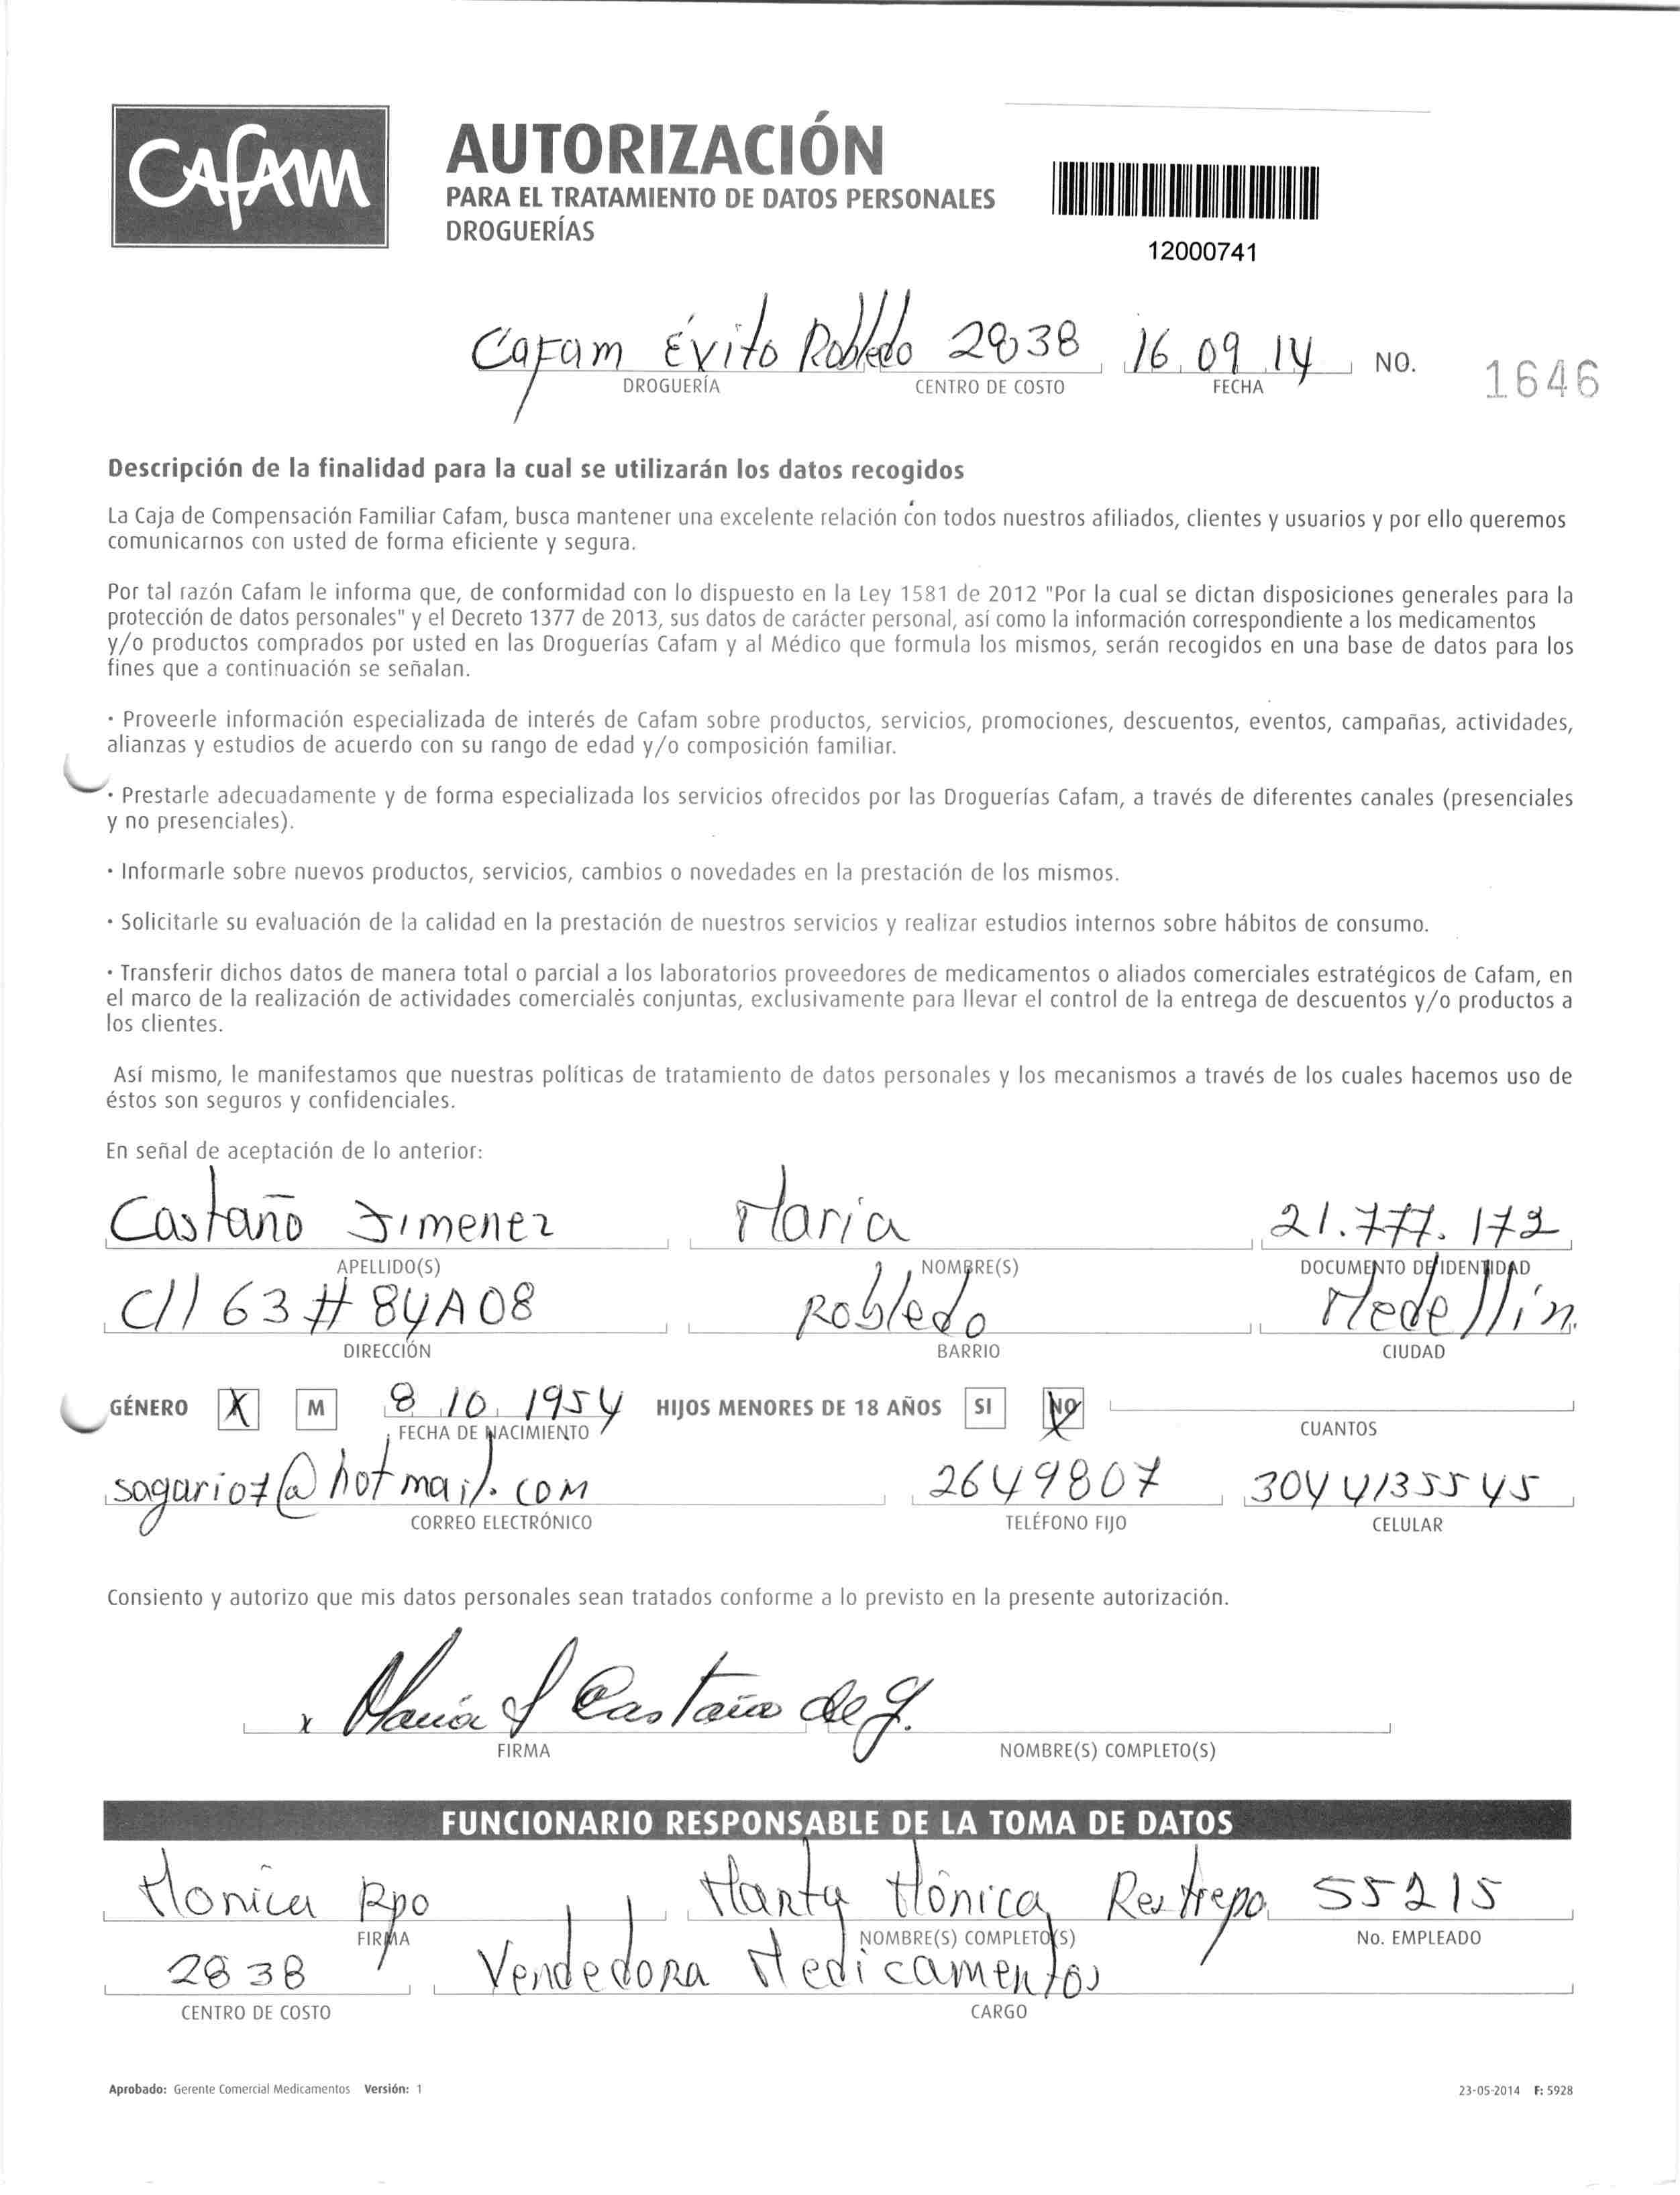 CAFAM
AUTORIZACIÓN
PARA EL TRATAMIENTO DE DATOS PERSONALES
DROGUERÍAS
12000741
Cafam Éxito Robledo 2838 16 09 14 NO. 1646
DROGUERÍA CENTRO DE COSTO FECHA
Descripción de la finalidad para la cual se utilizarán los datos recogidos
La Caja de Compensación Familiar Cafam, busca mantener una excelente relación con todos nuestros afiliados, clientes y usuarios y por ello queremos
comunicarnos con usted de forma eficiente y segura.
Por tal razón Cafam le informa que, de conformidad con lo dispuesto en la Ley 1581 de 2012 "Por la cual se dictan disposiciones generales para la
protección de datos personales" y el Decreto 1377 de 2013, sus datos de carácter personal, así como la información correspondiente a los medicamentos
y/o productos comprados por usted en las Droguerías Cafam y al Médico que formula los mismos, serán recogidos en una base de datos para los
fines que a continuación se señalan.
· Proveerle información especializada de interés de Cafam sobre productos, servicios, promociones, descuentos, eventos, campañas, actividades,
alianzas y estudios de acuerdo con su rango de edad y/o composición familiar.
· Prestarle adecuadamente y de forma especializada los servicios ofrecidos por las Droguerías Cafam, a través de diferentes canales (presenciales
y no presenciales).
· Informarle sobre nuevos productos, servicios, cambios o novedades en la prestación de los mismos.
· Solicitarle su evaluación de la calidad en la prestación de nuestros servicios y realizar estudios internos sobre hábitos de consumo.
· Transferir dichos datos de manera total o parcial a los laboratorios proveedores de medicamentos o aliados comerciales estratégicos de Cafam, en
el marco de la realización de actividades comerciales conjuntas, exclusivamente para llevar el control de la entrega de descuentos y/o productos a
los clientes.
Así mismo, le manifestamos que nuestras políticas de tratamiento de datos personales y los mecanismos a través de los cuales hacemos uso de
éstos son seguros y confidenciales.
En señal de aceptación de lo anterior:
Castaño Jimenez Maria 21.777.172
APELLIDO(S) NOMBRE(S) DOCUMENTO DE IDENTIDAD
Cll 63 # 84A08 Robledo Medellín
DIRECCIÓN BARRIO CIUDAD
GÉNERO X M 8 10 1954 HIJOS MENORES DE 18 AÑOS SI NO
FECHA DE NACIMIENTO CUANTOS
sagario7@hotmail.com 2649807 304 4135545
CORREO ELECTRÓNICO TELÉFONO FIJO CELULAR
Consiento y autorizo que mis datos personales sean tratados conforme a lo previsto en la presente autorización.
x Maria S Castaño de J.
FIRMA NOMBRE(S) COMPLETO(S)
FUNCIONARIO RESPONSABLE DE LA TOMA DE DATOS
Monica Rpo Marta Mónica Restrepo 55215
FIRMA NOMBRE(S) COMPLETO(S) No. EMPLEADO
2838 Vendedora Medicamentos
CENTRO DE COSTO CARGO
Aprobado: Gerente Comercial Medicamentos Versión: 1 23-05-2014 F: 5928